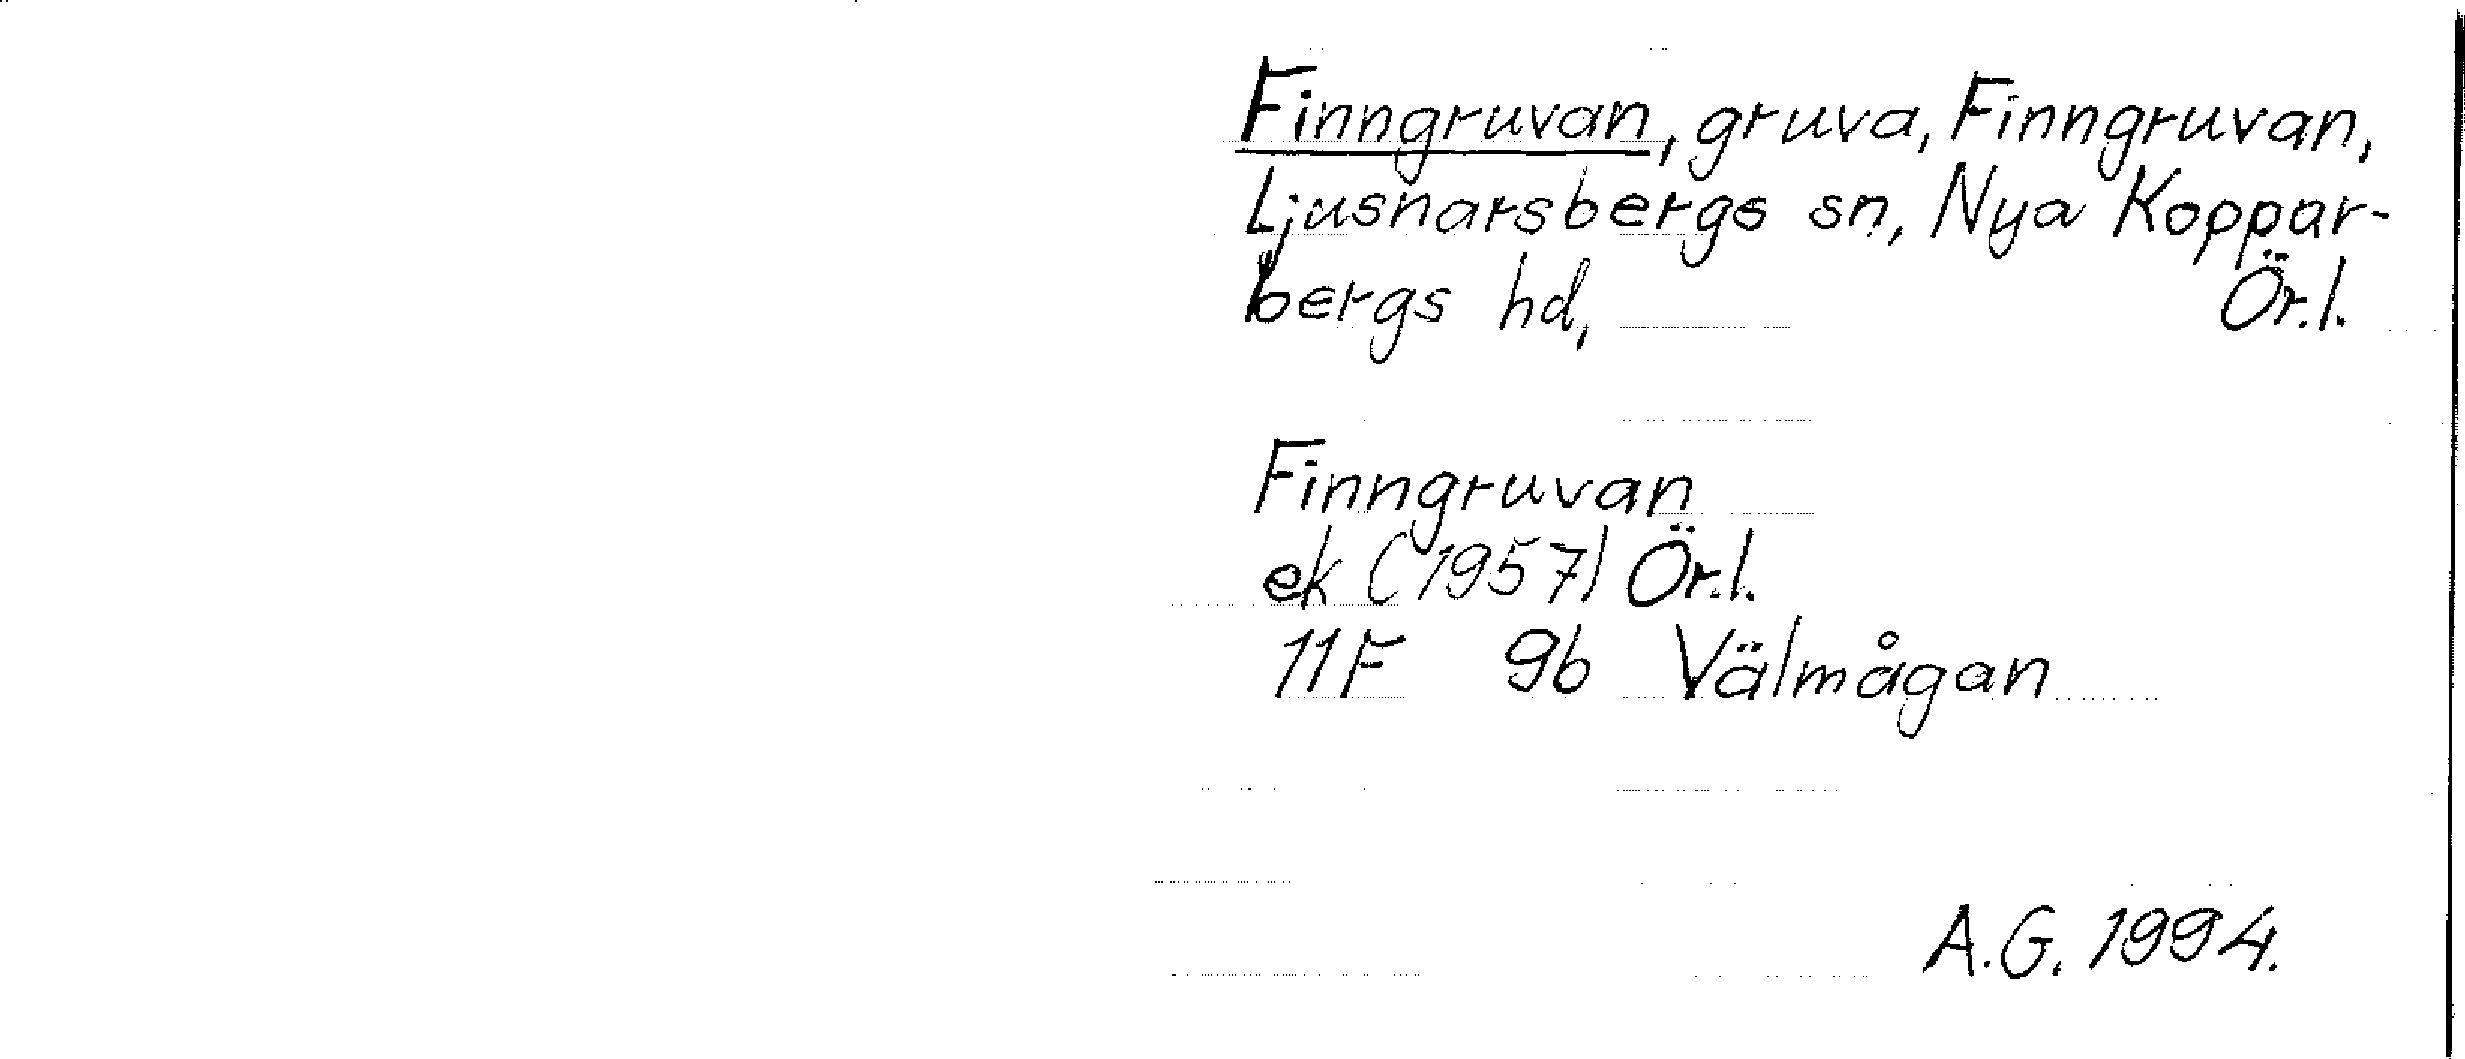 Finngruvan, gruva, Finngruvan,
Ljusnarsbergs sn, Nya Koppar-
bergs hd, Ör.l.
Finngruvan
ek (1957) Ör.l.
11F 9b Välmågan
A.G. 1994.